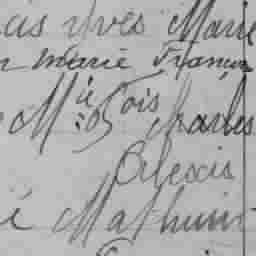 Yves Marie
Marie François
Mie Fois Charles
Alexis
Mathurin